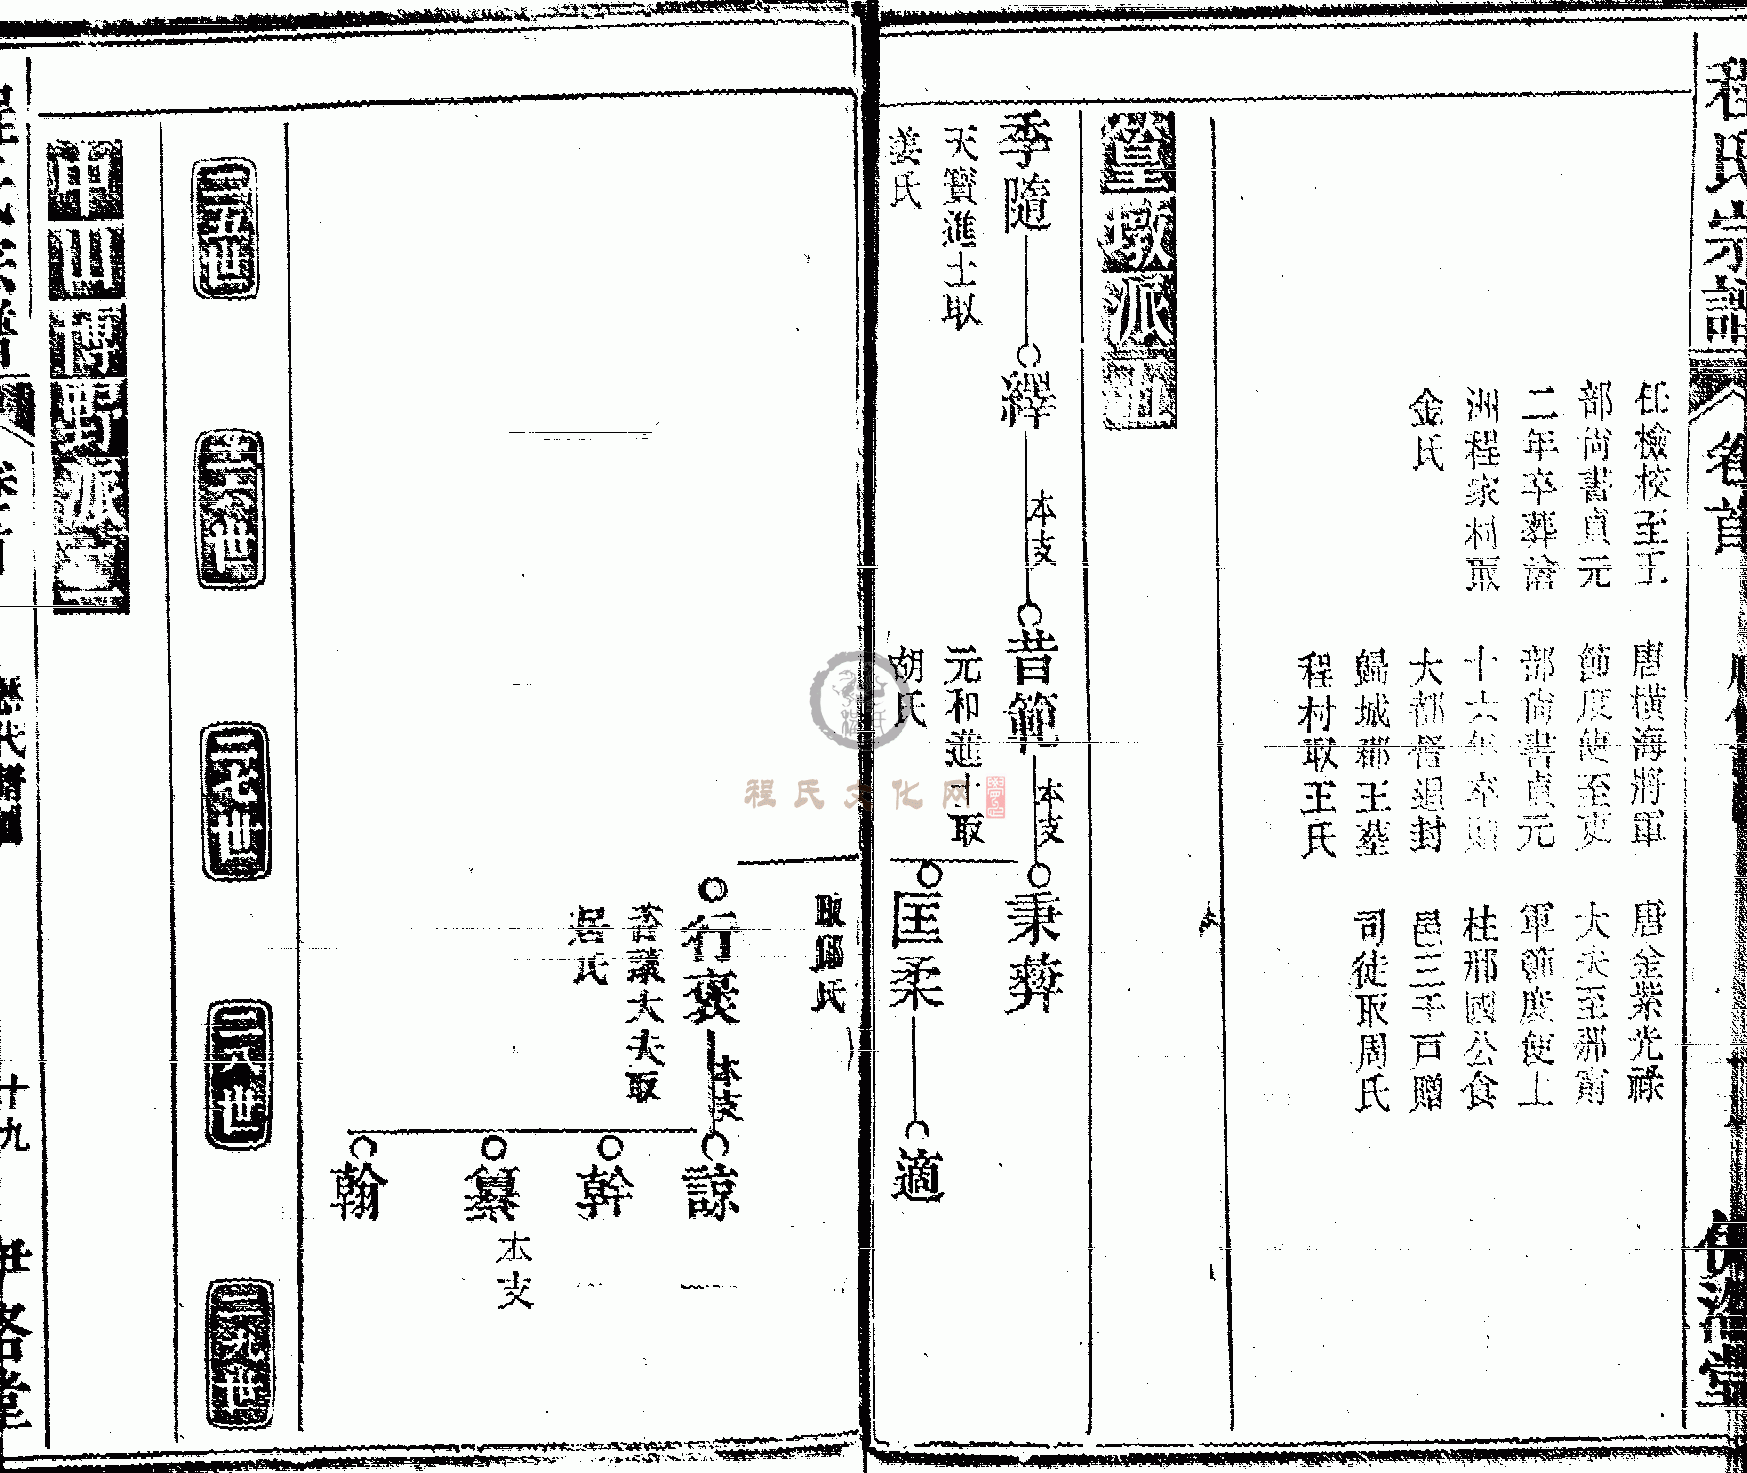 程氏宗譜
卷首
任檢校至工
部尚書貞元
二年卒葬滄
洲程家村取
金氏
唐橫海將軍
節度使至吏
部尚書貞元
十六年卒贈
大都督追封
歸城郡王墓
程村取王氏
唐金紫光祿
大夫至邢甯
軍節度使上
柱邢國公食
邑三千戸贈
司徒取周氏
篁墩派五
季隨
天寶進士取
姜氏
繹
本支
昔範
元和進士取
胡氏
本支
秉彝
匡柔
適
取鄭氏
行褒
本支
諫議大夫取
諒
幹
纂
本支
翰
二五世
二六世
二七世
二八世
二九世
中山博野派
歷代譜圖
十九
伊洛堂
程氏文化网